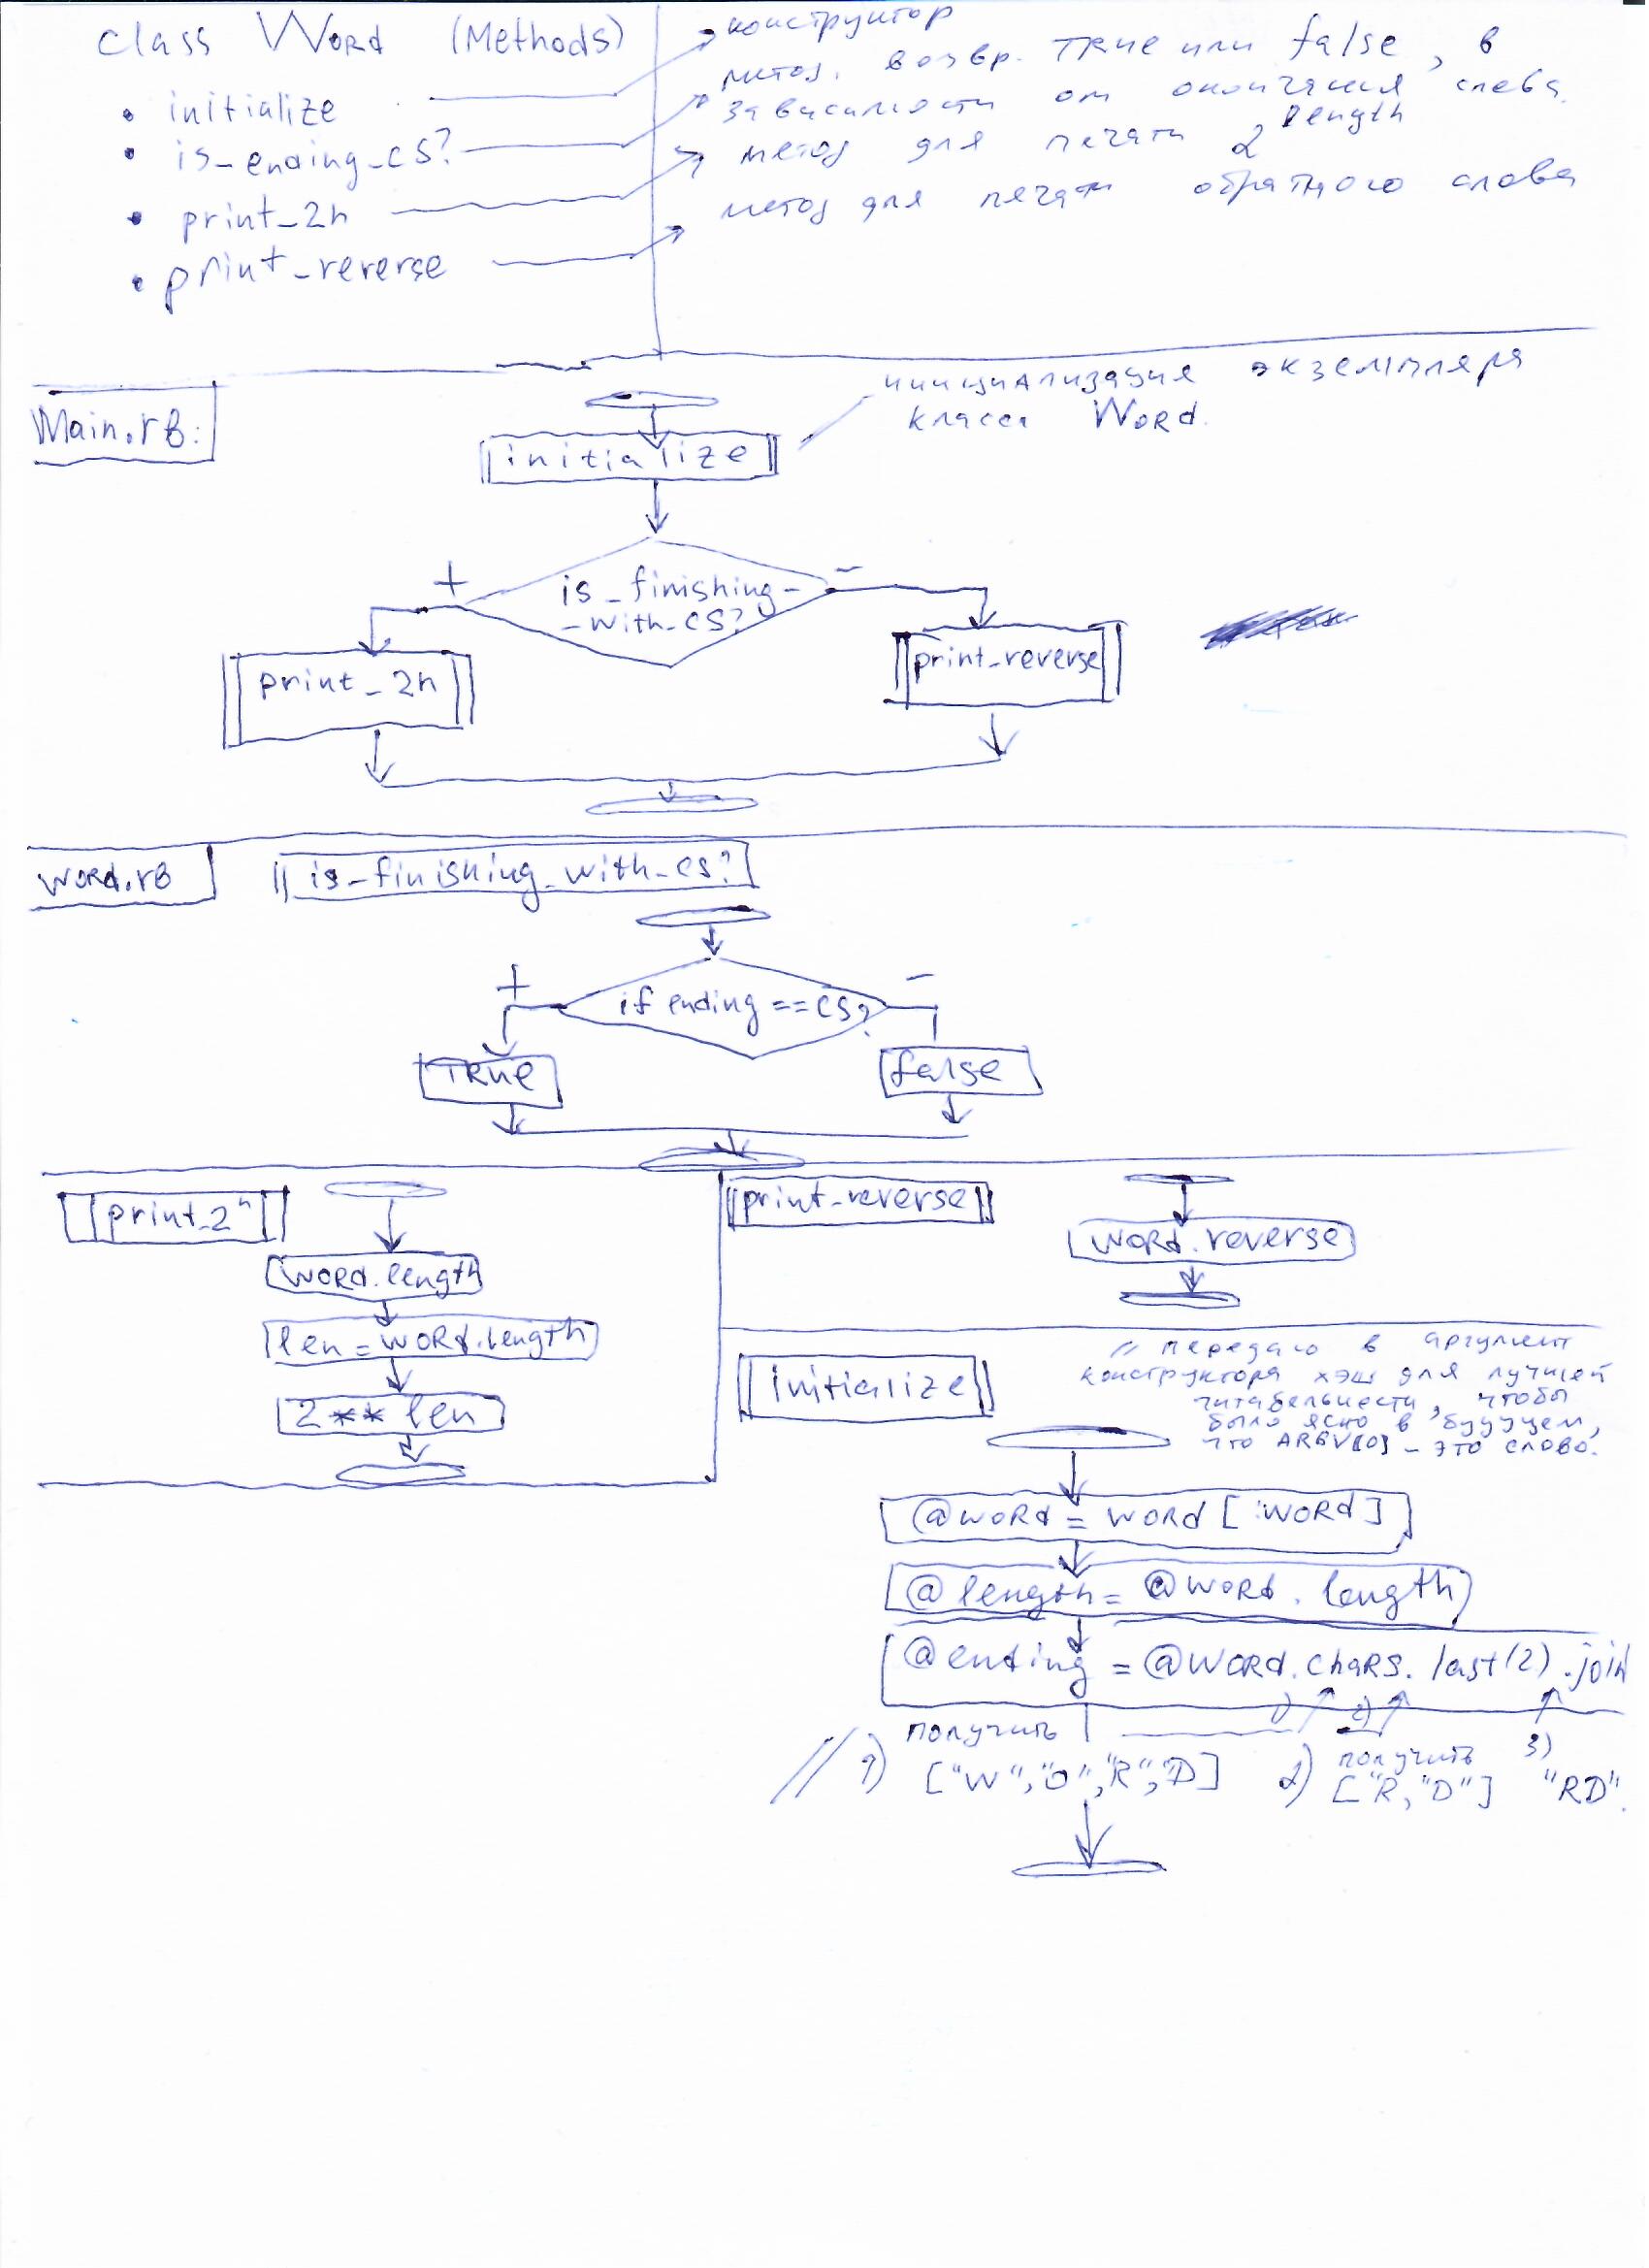 class Word (Methods)
• initialize
• is_ending_cs?
• print_2n
• print_reverse
конструктор
метод. возвр. True или false, в
зависимости от окончания слова.
метод для печати 2 length
метод для печати обратного слова
Main.rb:
инициализация экземпляра
класса Word.
initialize
+
is_finishing-
-with_cs?
-
print_2n
print_reverse
word.rb
is_finishing_with_cs?
+
if ending == cs?
-
True
false
print_2ⁿ
word.length
len = word.length
2 ** len
print_reverse
word.reverse
initialize
// передаю в аргумент
конструктора хэш для лучшей
читабельности, чтобы
было ясно в будущем,
что ARGV[0] - это слово.
@word = word [:word]
@length = @word.length
@ending = @word.chars.last(2).join
1) 2) 3)
// 1) получить
["W","O","R","D]
2) получить
["R,"D"]
"RD".